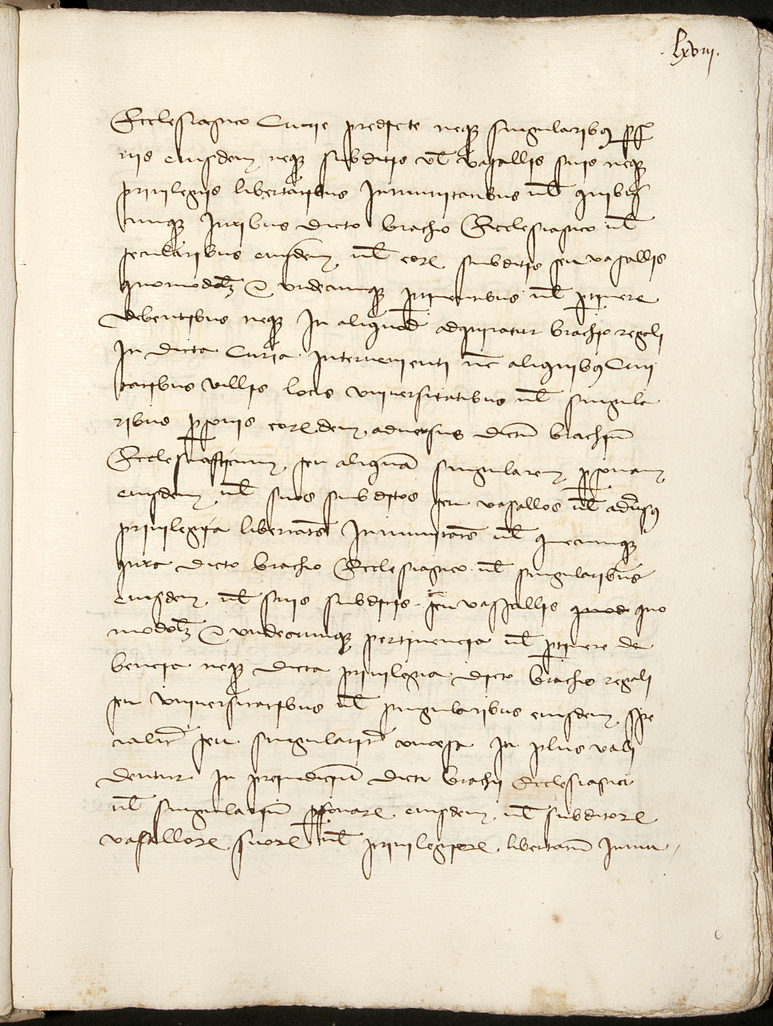 lxviii.
Ecclesiastico Curie predicte neque singularibus perso
nis eiusdem neque subditis vel vasallis suis neque
privilegiis libertatibus Inmunitatibus vel quibus
cunque Iuribus dicto brachio Ecclesiastico vel
secularibus eiusdem vel eorum subditis seu vasallis
quomodolibet & undecunque pertinentibus vel pertinere
debentibus neque In aliquo adquiratur brachio regali
In dicta Curia Intervenienti nec aliquibus Civi
tatibus villis locis universitatibus vel singula
ribus personis eorundem adversus dictum brachium
Ecclesiasticum seu aliquam singularem personam
eiusdem vel suos subditos seu vasallos vel adversus
privilegia libertates Inmunitates vel quecunque
Iura dicto brachio Ecclesiastico vel singularibus
eiusdem vel suis subditis seu vassallis quo
modolibet & undecunque pertinencia vel pertinere de
bencia neque dicta privilegia dicto brachio regali
seu universitatibus vel singularibus eiusdem spe
cialiter seu singulariter concessa In plus vali
dentur In preiudicium dicti brachii Ecclesiastici
vel singularium personarum eiusdem vel subditorum
vasallorum suorum vel privilegiorum libertatum Inmu